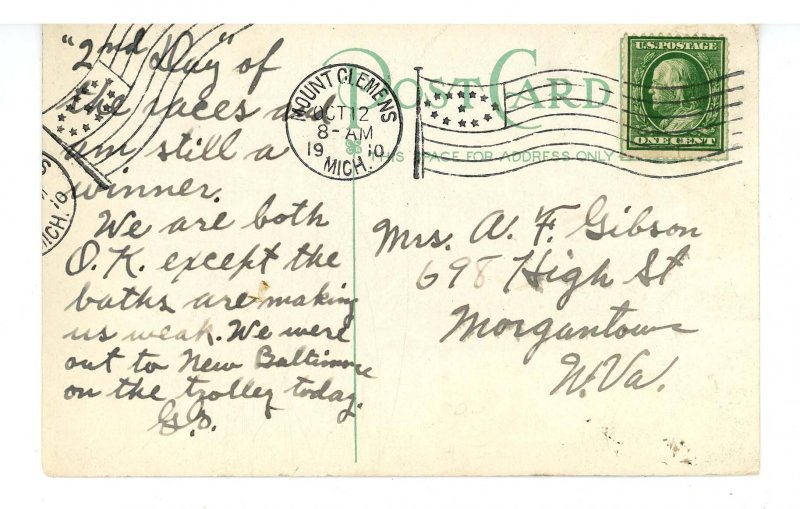 "2nd Day" of
the races and
am still a
winner.
We are both
O.K. except the
baths are making
us weak. We were
out to New Baltimore
on the trolley today.
POST CARD
THIS SPACE FOR ADDRESS ONLY
MOUNT CLEMENS
OCT 12
8-AM
19 10
MICH.
U.S. POSTAGE
ONE CENT
Mrs. A. F. Gibson
698 High St
Morgantown
W. Va.
MICH. 10